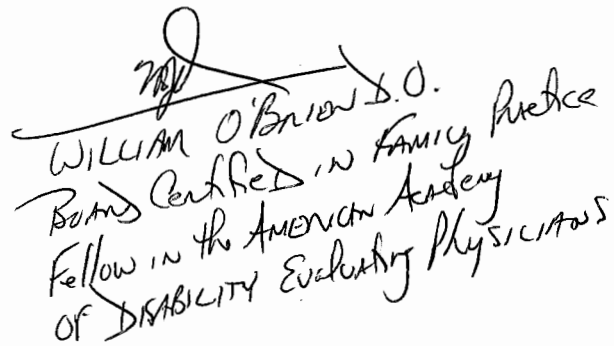 WILLIAM O'BRIEN D.O.
BOARD Certified IN FAMILY Practice
Fellow IN the AMERICAN Academy
OF DISABILITY Evaluating Physicians